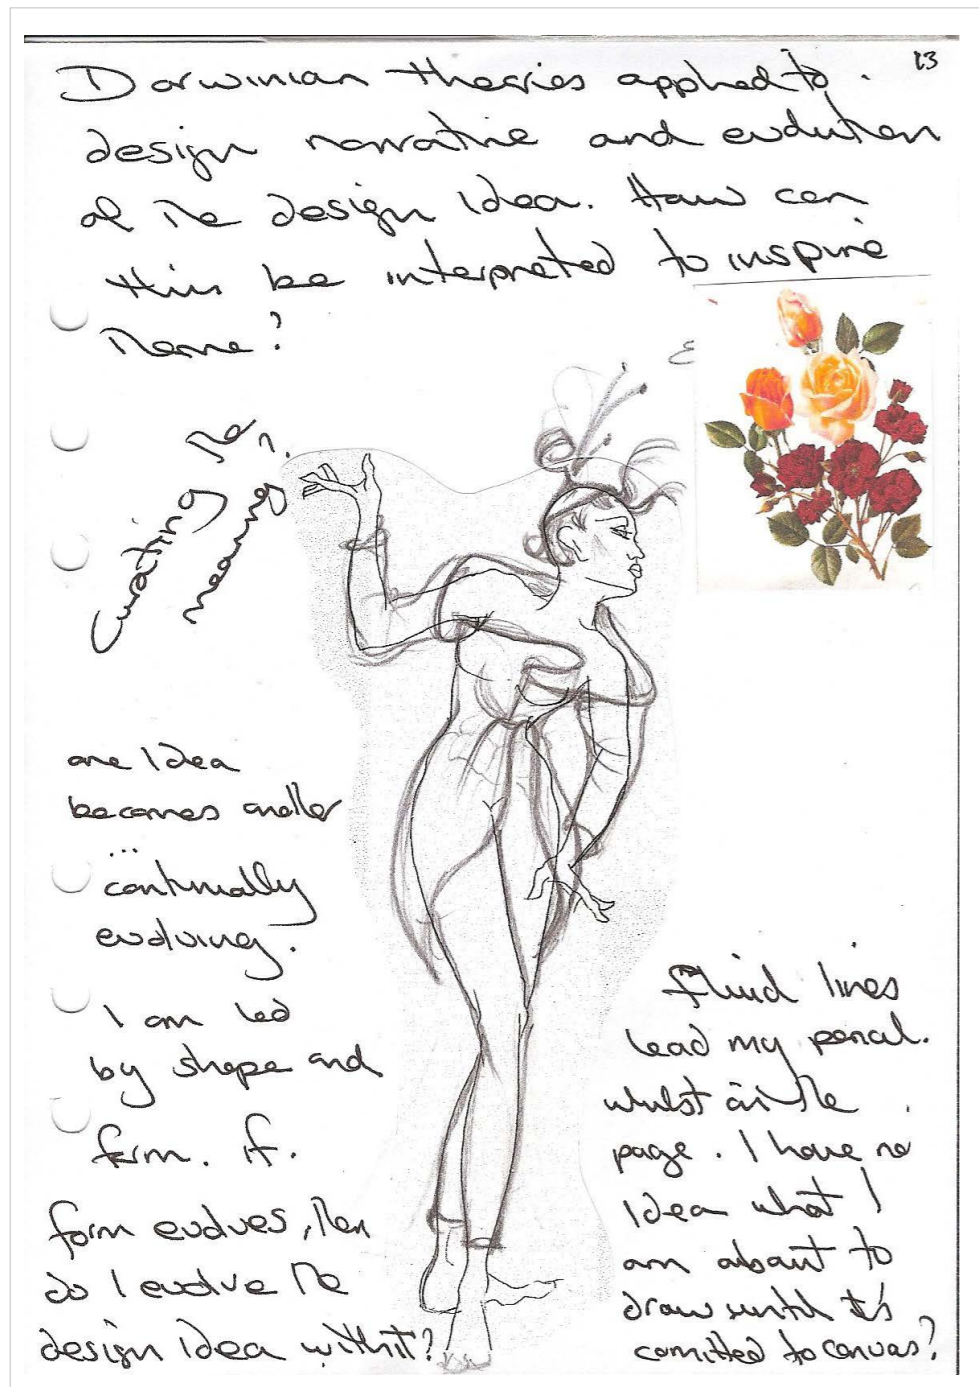 13
Darwinian theories applied to.
design narrative and evolution
of the design idea. How can
this be interpreted to inspire
theme?
Curating the
meaning?
one idea
becomes another
...
continually
evolving.
I am led
by shape and
form. if.
form evolves, then
do I evolve the
design idea with it?
Fluid lines
lead my pencil.
whilst on the
page. I have no
idea what I
am about to
draw until it's
comitted to canvas?